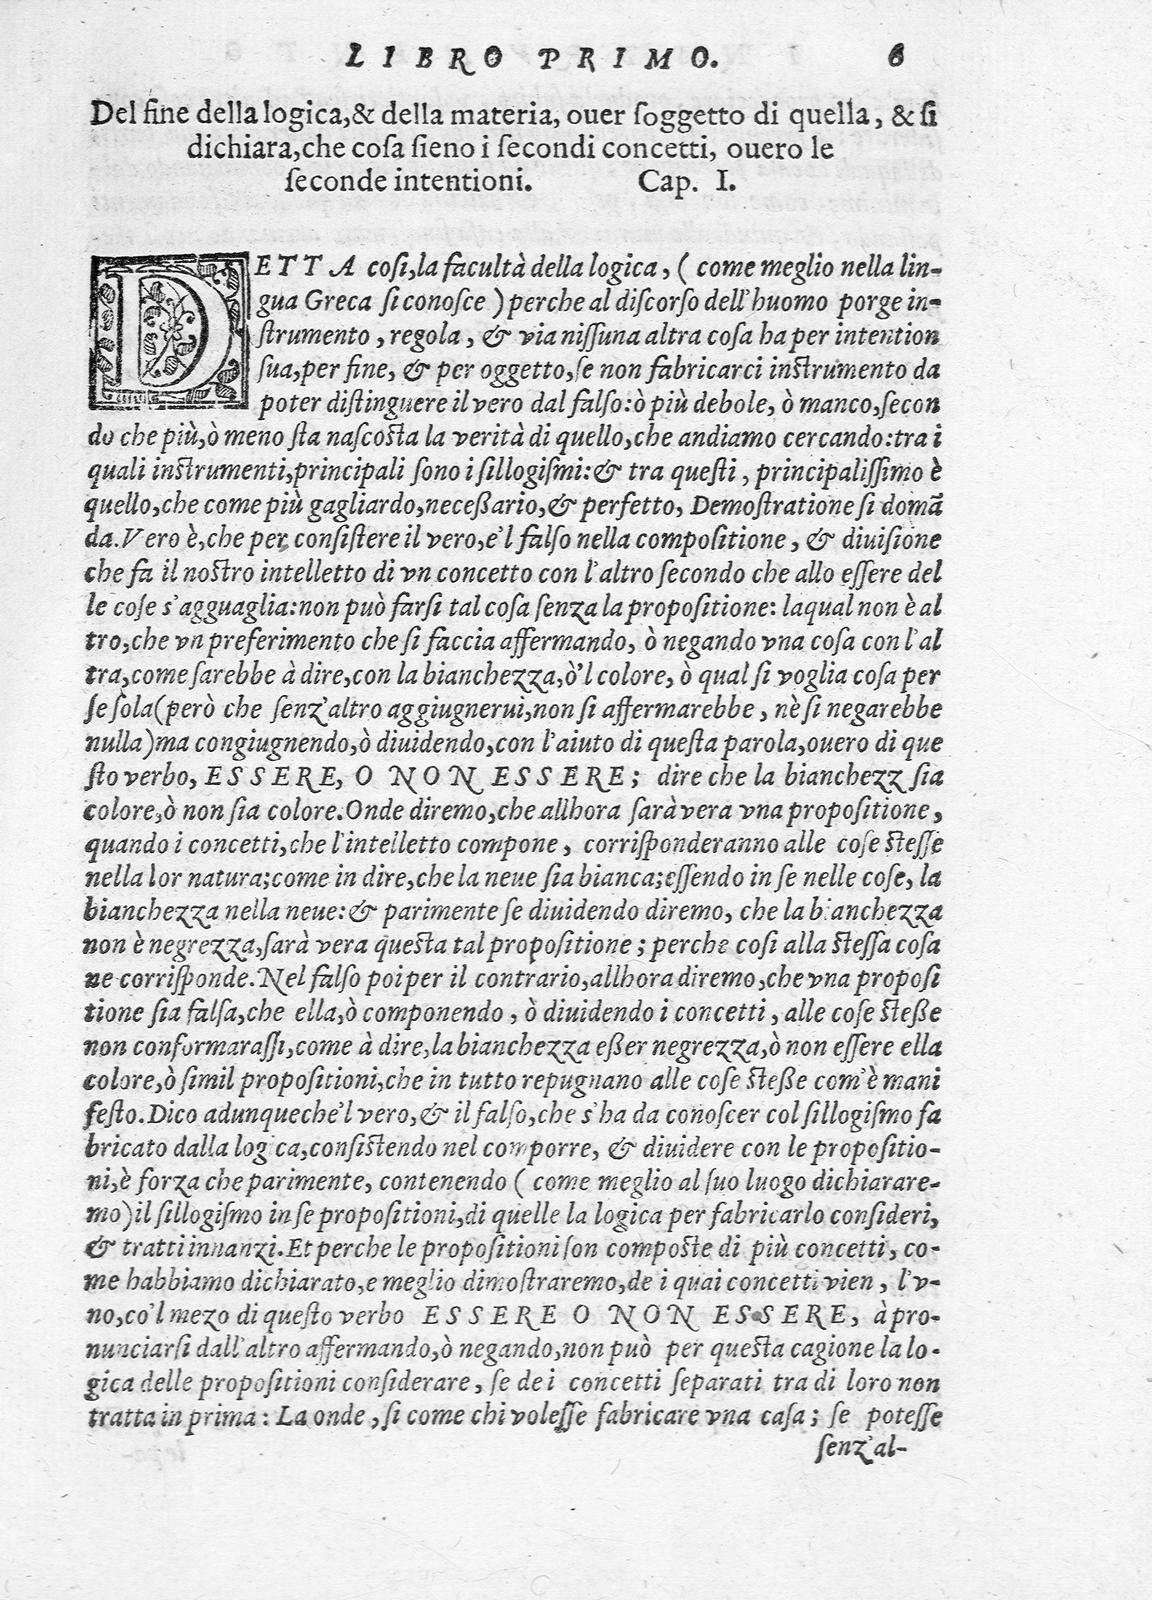 LIBRO PRIMO. 6
Del fine della logica,& della materia, ouer ſoggetto di quella, & ſi
dichiara,che coſa ſieno i ſecondi concetti, ouero le
ſeconde intentioni. Cap. I.
DETTA coſi,la facultà della logica, ( come meglio nella lin-
gua Greca ſi conoſce ) perche al diſcorſo dell'huomo porge in-
ſtrumento , regola , & via niſſuna altra coſa ha per intention
ſua,per fine, & per oggetto,ſe non fabricarci inſtrumento da
poter diſtinguere il vero dal falſo:ò più debole, ò manco,ſecon
do che più,ò meno ſta naſcoſta la verità di quello,che andiamo cercando:tra i
quali inſtrumenti,principali ſono i ſillogiſmi:& tra queſti , principaliſſimo è
quello,che come più gagliardo,neceßario,& perfetto, Demoſtratione ſi domã
da.Vero è,che per conſiſtere il vero,e'l falſo nella compoſitione , & diuiſione
che fa il noſtro intelletto di vn concetto con l'altro ſecondo che allo eſſere del
le coſe s'agguaglia:non può farſi tal coſa ſenza la propoſitione: laqual non è al
tro,che vn preferimento che ſi faccia affermando, ò negando vna coſa con l'al
tra,come ſarebbe à dire,con la bianchezza,ò'l colore, ò qual ſi voglia coſa per
ſe ſola(però che ſenz'altro aggiugnerui,non ſi affermarebbe , nè ſi negarebbe
nulla)ma congiugnendo,ò diuidendo,con l'aiuto di queſta parola,ouero di que
ſto verbo, ESSERE, O NON ESSERE; dire che la bianchezz ſia
colore,ò non ſia colore.Onde diremo,che allhora ſarà vera vna propoſitione ,
quando i concetti,che l'intelletto compone , corriſponderanno alle coſe ſteſſe
nella lor natura;come in dire,che la neue ſia bianca;eſſendo in ſe nelle coſe, la
bianchezza nella neue:& parimente ſe diuidendo diremo, che la bianchezza
non è negrezza,ſarà vera queſta tal propoſitione ; perche coſi alla ſteſſa coſa
ne corriſponde.Nel falſo poi per il contrario,allhora diremo,che vna propoſi
tione ſia falſa,che ella,ò componendo , ò diuidendo i concetti , alle coſe ſteße
non conformaraſſi,come à dire,la bianchezza eßer negrezza,ò non eſſere ella
colore,ò ſimil propoſitioni,che in tutto repugnano alle coſe ſteße com'è mani
feſto.Dico adunque che'l vero,& il falſo,che s'ha da conoſcer col ſillogiſmo fa
bricato dalla logica,conſiſtendo nel comporre, & diuidere con le propoſitio-
ni,è forza che parimente, contenendo ( come meglio al ſuo luogo dichiarare-
mo)il ſillogiſmo in ſe propoſitioni,di quelle la logica per fabricarlo conſideri,
& tratti innanzi.Et perche le propoſitioni ſon compoſte di più concetti , co-
me habbiamo dichiarato,e meglio dimoſtraremo,de i quai concetti vien , l'v-
no,co'l mezo di queſto verbo ESSERE O NON ESSERE, à pro-
nunciarſi dall'altro affermando,ò negando,non può per queſta cagione la lo-
gica delle propoſitioni conſiderare , ſe de i concetti ſeparati tra di loro non
tratta in prima : La onde , ſi come chi voleſſe fabricare vna caſa ; ſe poteſſe
ſenz'al-